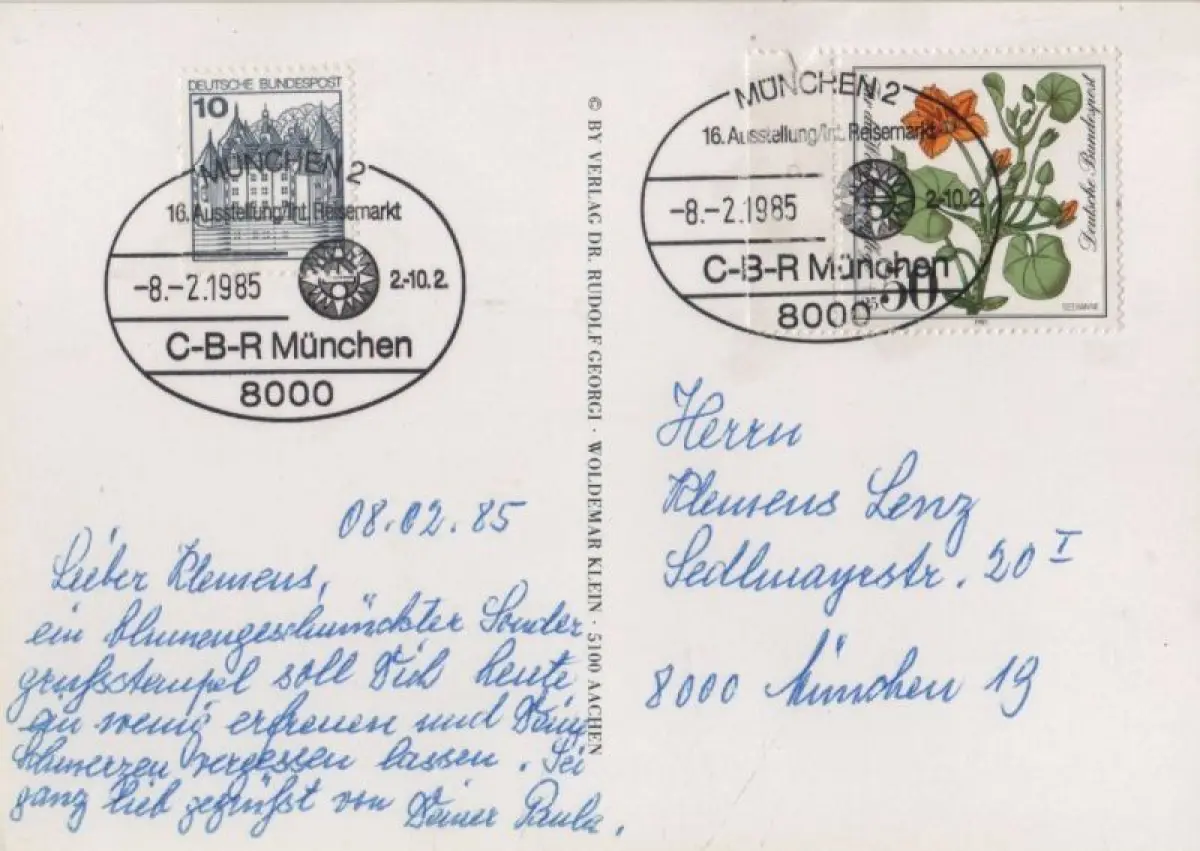 DEUTSCHE BUNDESPOST
10
MÜNCHEN 2
16. Ausstellung/Int. Reisemarkt
-8.-2.1985
2.-10.2.
C-B-R München
8000
08.02.85
Lieber Klemens,
ein blumengeschmückter Sonder
grußstempel soll Dich heute
ein wenig erfreuen und Deine
Schmerzen vergessen lassen. Sei
ganz lieb gegrüßt von Deiner Paula.
© BY VERLAG DR. RUDOLF GEORGI · WOLDEMAR KLEIN · 5100 AACHEN
MÜNCHEN 2
16. Ausstellung/Int. Reisemarkt
-8.-2.1985
2.-10.2.
C-B-R München
8000
Deutsche Bundespost
50
25
SEEKANNE
1981
Herrn
Klemens Lenz
Sedlmayrstr. 20 I
8000 München 19